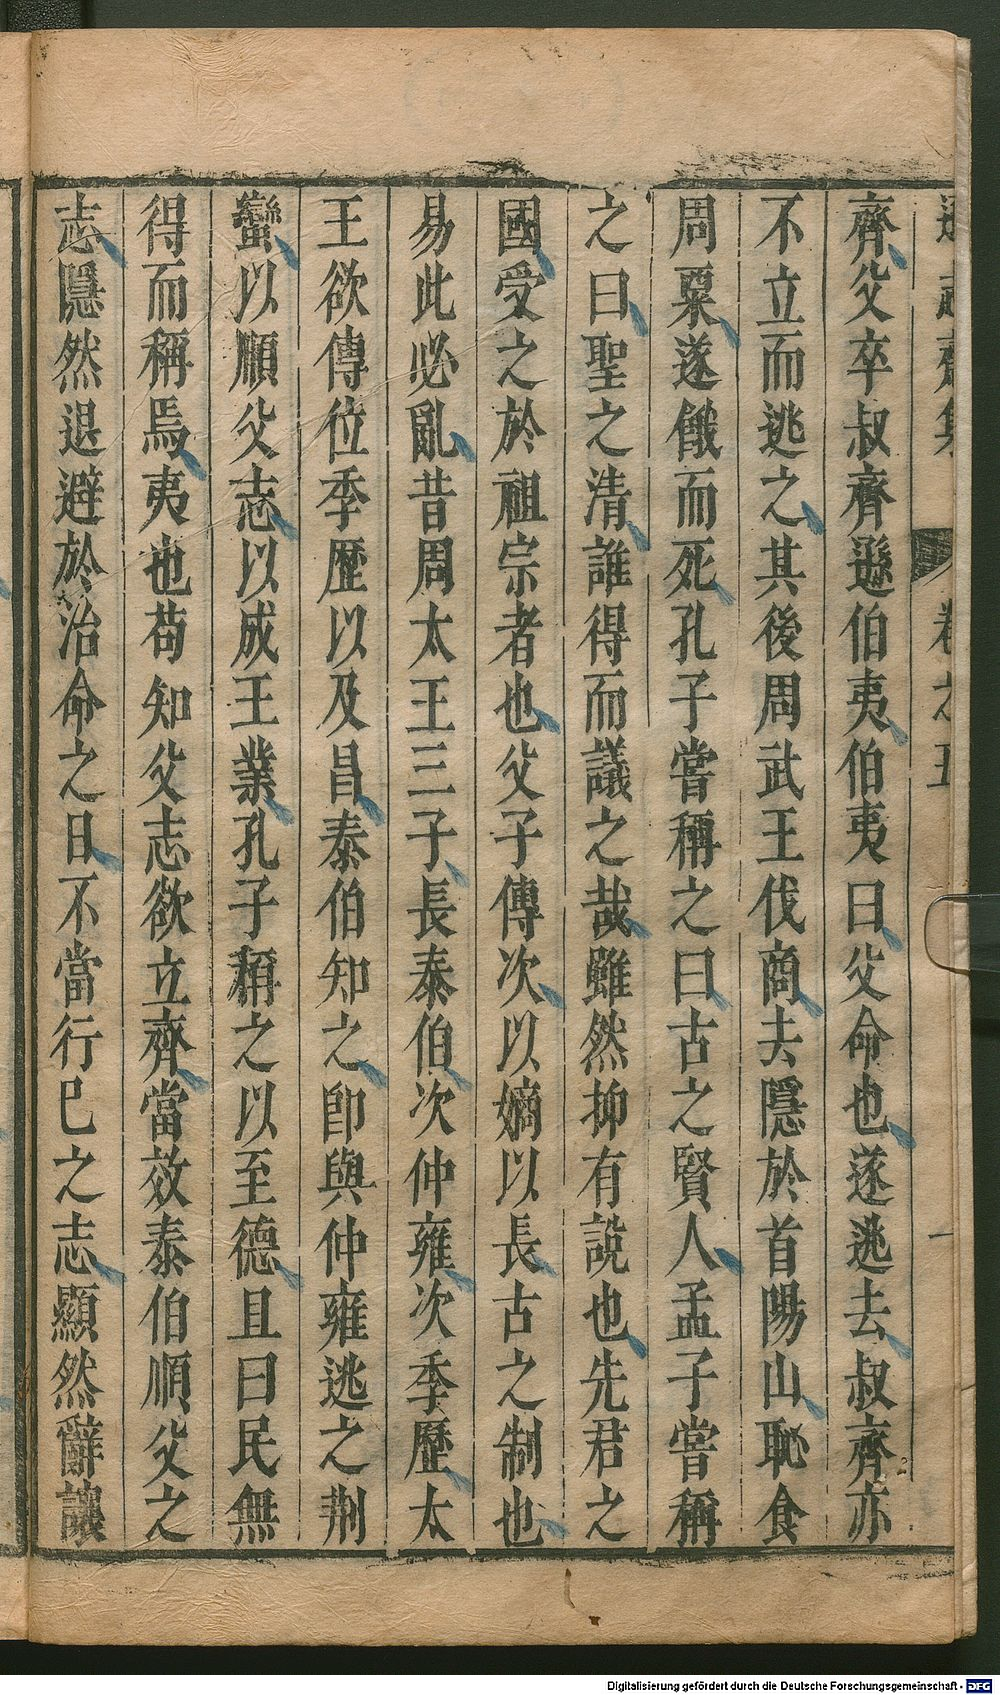 齊父卒叔齊遜伯夷伯夷曰父命也遂逃去叔齊亦
不立而逃之其後周武王伐商去隱於首陽山恥食
周粟遂餓而死孔子嘗稱之曰古之賢人孟子嘗稱
之曰聖之清誰得而議之哉雖然抑有說也先君之
國受之於祖宗者也父子傳次以嫡以長古之制也
易此必亂昔周太王三子長泰伯次仲雍次季歷太
王欲傳位季歷以及昌泰伯知之卽與仲雍逃之荆
蠻以順父志以成王業孔子稱之以至德且曰民無
得而稱焉夷也苟知父志欲立齊當效泰伯順父之
志隱然退避於治命之日不當行己之志顯然辭讓
卷之五
一
Digitalisierung gefördert durch die Deutsche Forschungsgemeinschaft - DFG